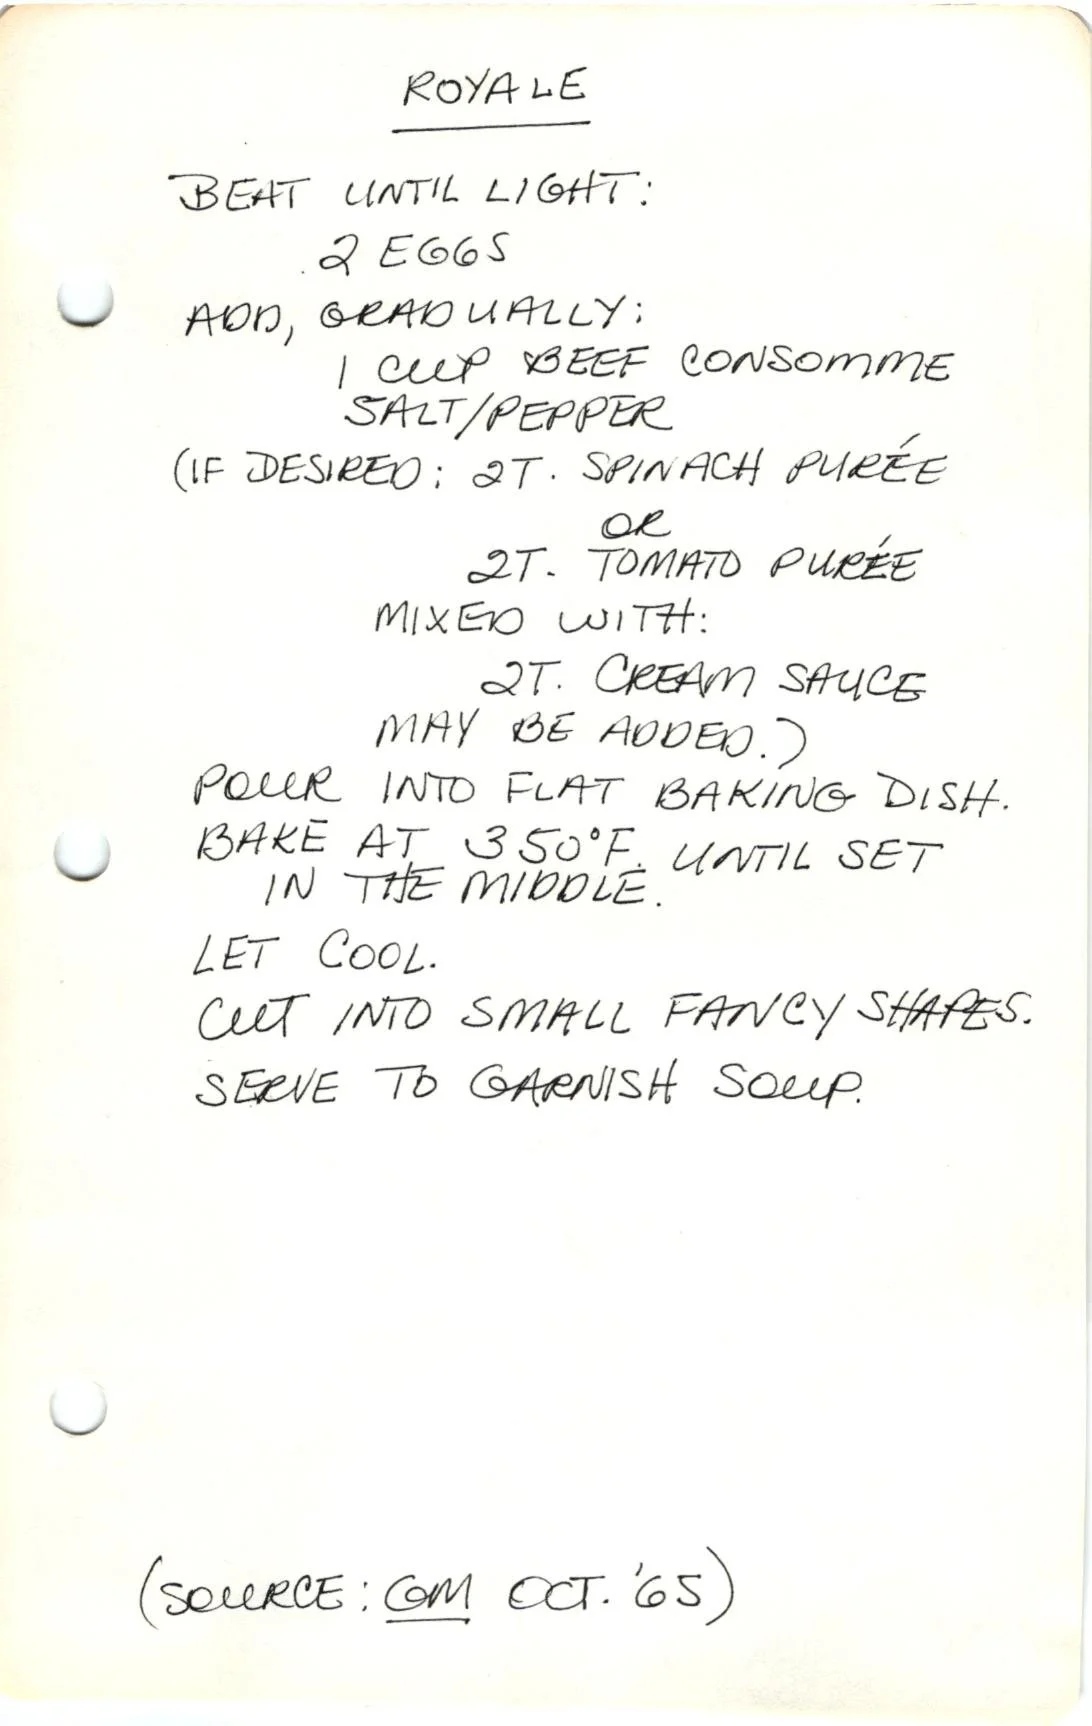 ROYALE
BEAT UNTIL LIGHT:
2 EGGS
ADD, GRADUALLY:
1 CUP BEEF CONSOMME
SALT/PEPPER
(IF DESIRED: 2T. SPINACH PURÉE
OR
2T. TOMATO PURÉE
MIXED WITH:
2T. CREAM SAUCE
MAY BE ADDED.)
POUR INTO FLAT BAKING DISH.
BAKE AT 350°F. UNTIL SET
IN THE MIDDLE.
LET COOL.
CUT INTO SMALL FANCY SHAPES.
SERVE TO GARNISH SOUP.
(SOURCE: GM OCT. '65)